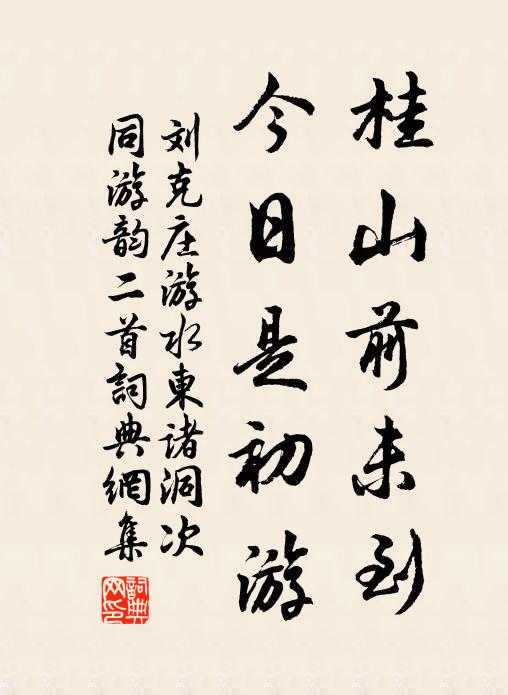 桂山前未到
今日是初游
刘克庄游水東诸洞次
同游韵二首詞典網集
詞典
网印